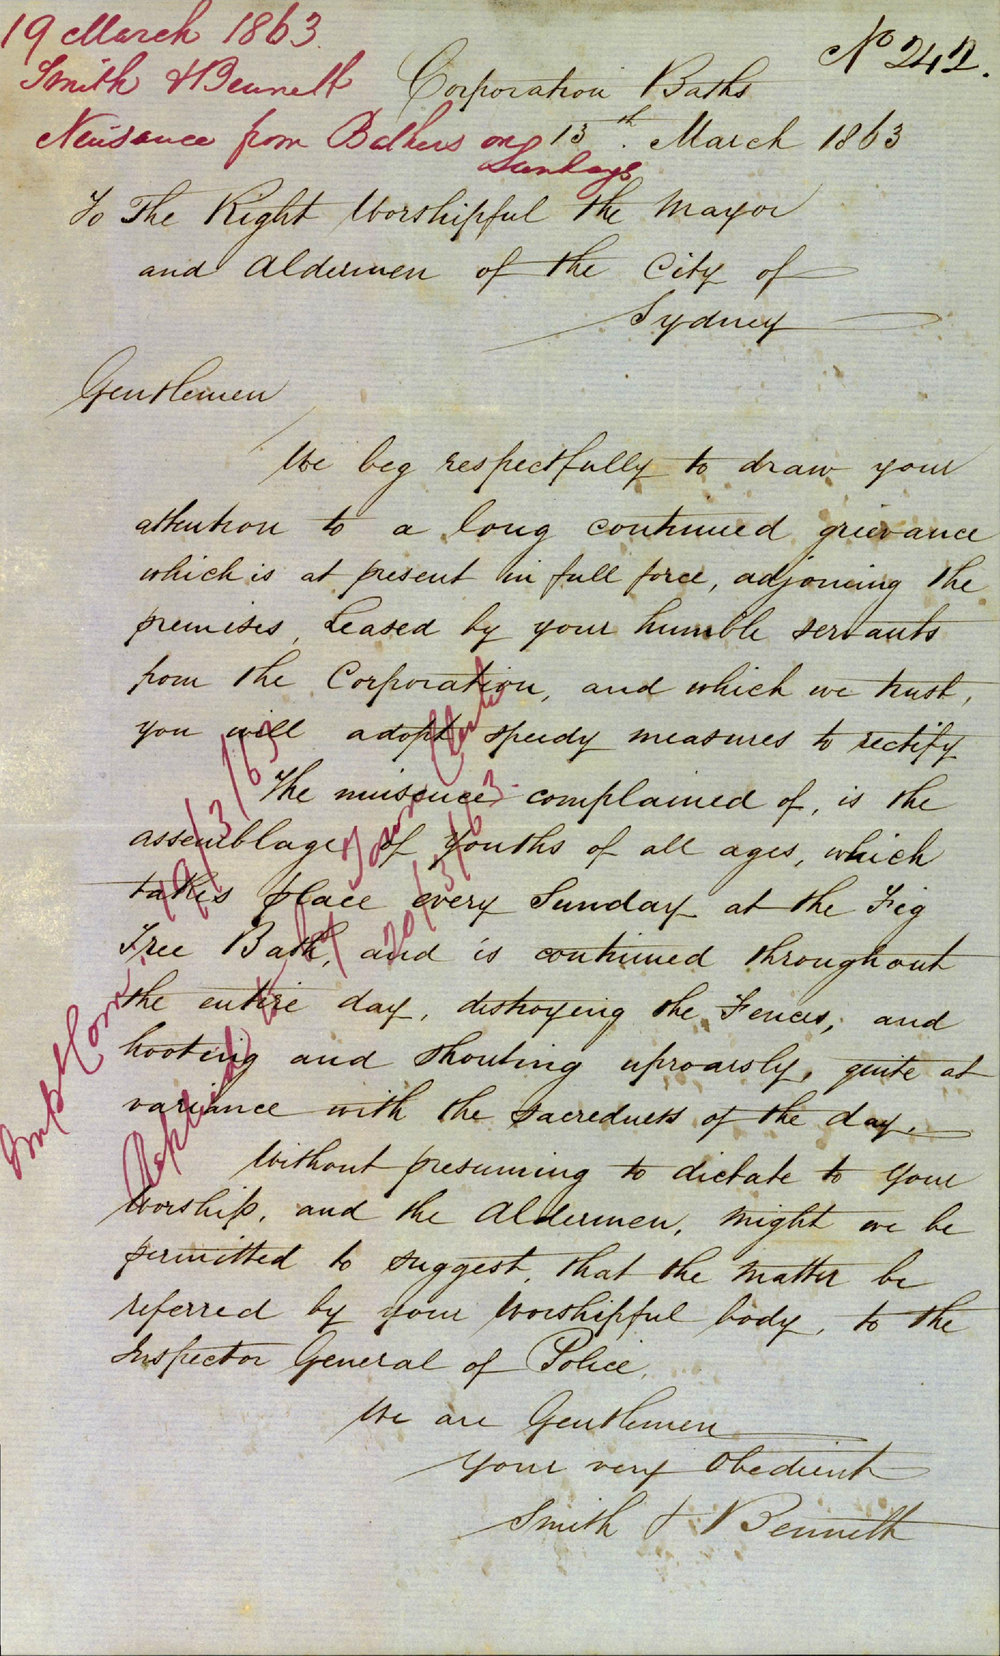 19 March 1863.
Smith & Bennett
Nuisance from Bathers on
Sundays
No 242.
Corporation Baths
13th. March 1863
To The Right Worshipful the Mayor
and Aldermen of the City of
Sydney
Gentlemen
We beg respectfully to draw your
attention to a long continued grievance
which is at present in full force, adjoining the
premises, Leased by your humble servants
from the Corporation, and which we trust,
you will adopt speedy measures to rectify
The nuisance complained of, is the
assemblage of Youths of all ages, which
takes place every Sunday at the Fig
Tree Bath, and is continued throughout
the entire day, distroying the Fences, and
hooting and shouting uproarsly, quite at
variance with the sacredness of the day.
Without presuming to dictate to Your
Worship, and the Aldermen, might we be
permitted to suggest, that the matter be
referred by your Worshipful body, to the
Inspector General of Police.
We are Gentlemen
Your very Obedient
Smith & Bennett
Imp Com. 19/3/63
Replied to by Town Clerk
20/3/63